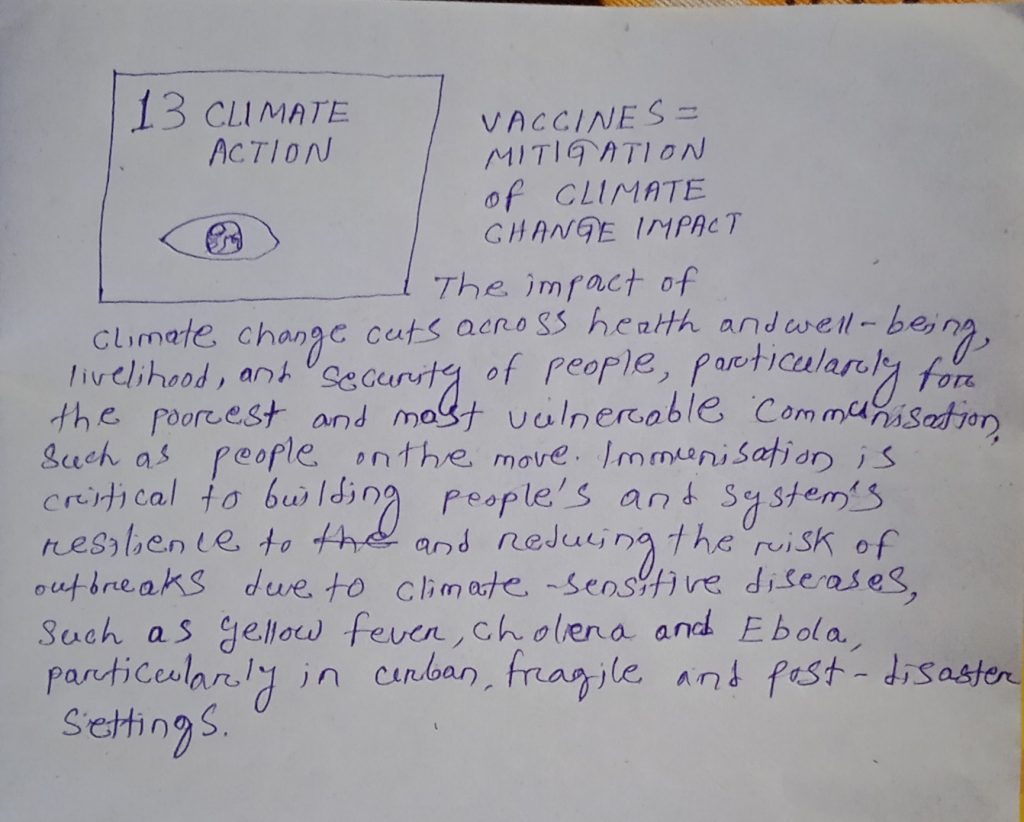 13 CLIMATE
ACTION
VACCINES =
MITIGATION
of CLIMATE
CHANGE IMPACT
The impact of
climate change cuts across health and well-being,
livelihood, and security of people, particularly for
the poorest and most vulnerable Communisation,
Such as people on the move. Immunisation is
critical to building people's and system's
resilience to the and reducing the risk of
outbreaks due to climate-sensitive diseases,
Such as yellow fever, cholera and Ebola,
particularly in urban, fragile and post-disaster
Settings.